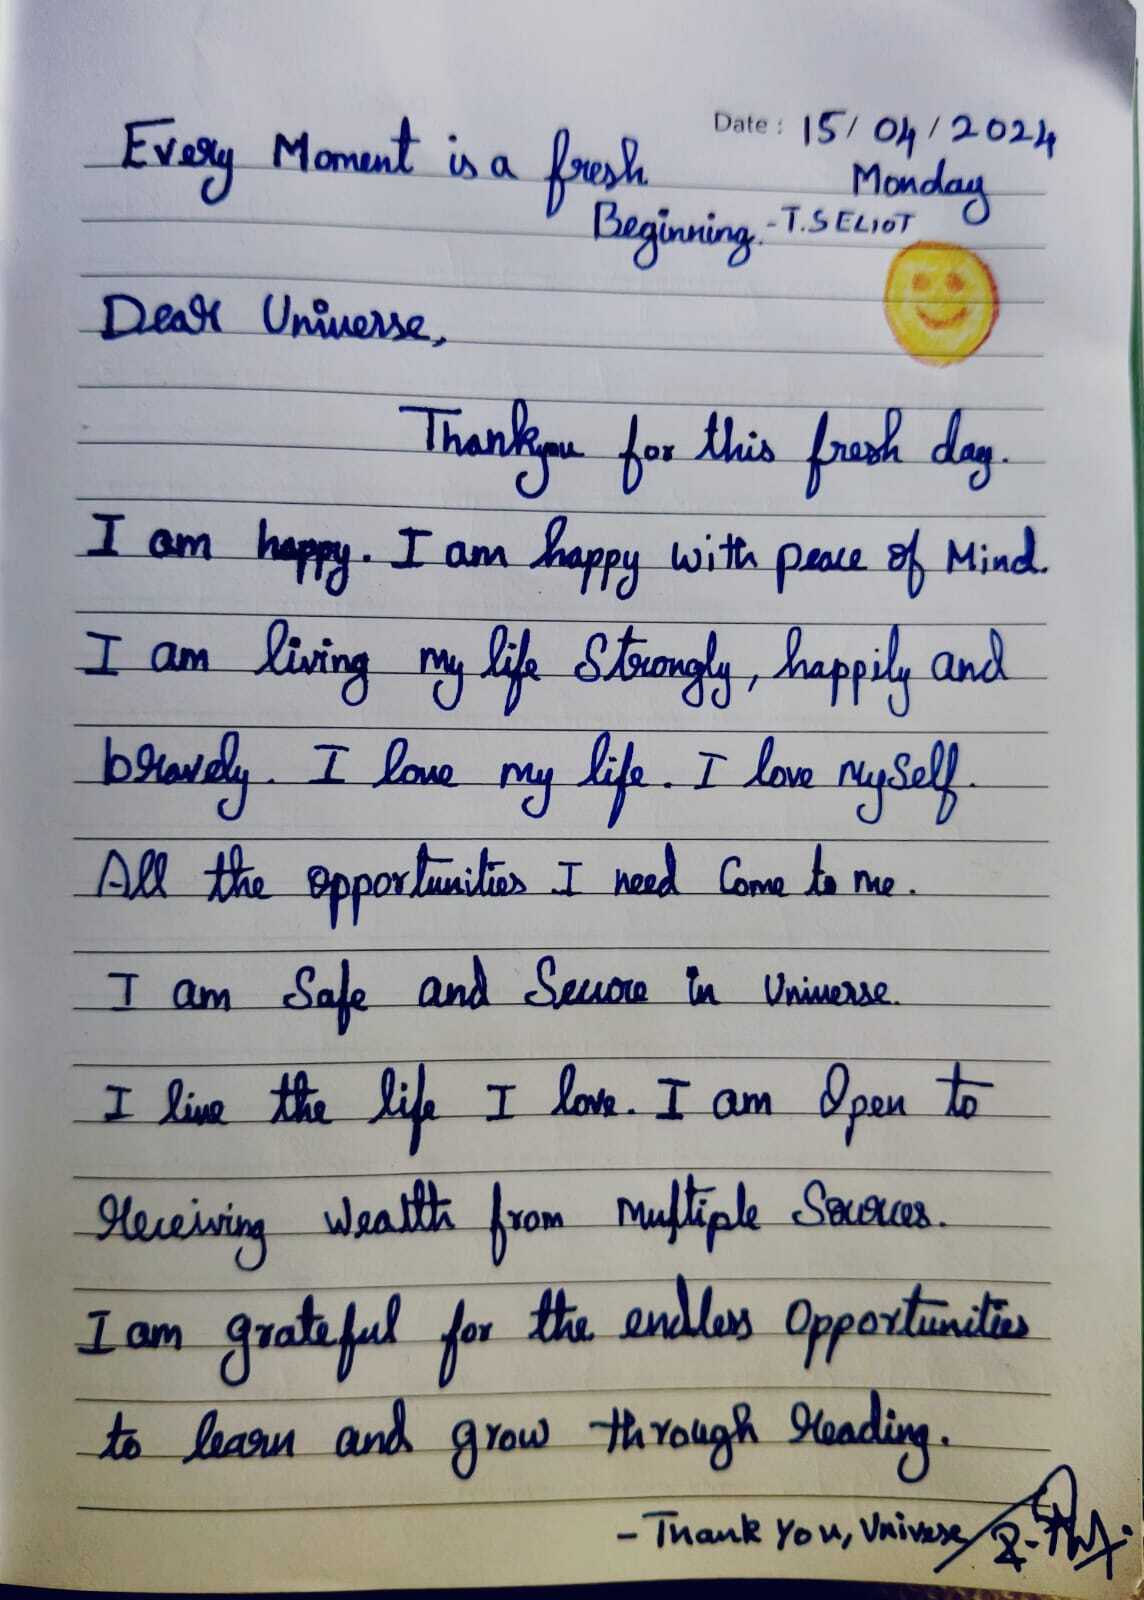 Date : 15/04/2024
Every Moment is a fresh
Monday
Beginning. - T.S ELIOT
Dear Universe,
Thankyou for this fresh day.
I am happy. I am happy with peace of Mind.
I am living my life Strongly, happily and
bravely. I love my life. I love MySelf.
All the opportunities I need Come to me.
I am Safe and Secure in Universe.
I live the life I love. I am Open to
receiving wealth from Multiple Sources.
I am grateful for the endless Opportunities
to learn and grow through reading.
- Thank You, Universe